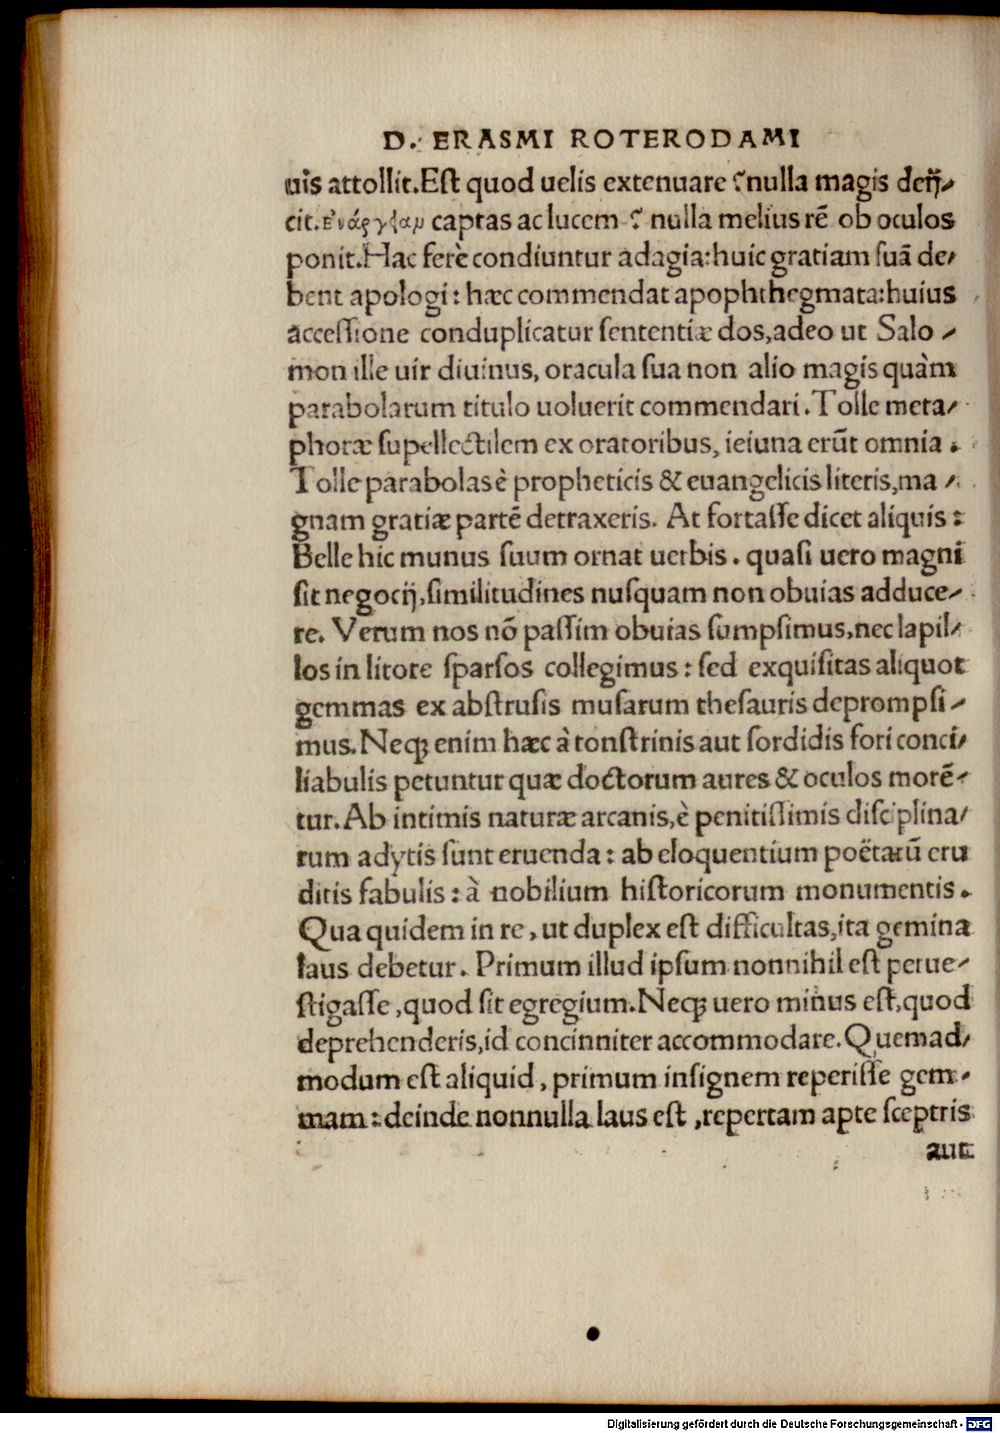 D. ERASMI ROTERODAMI
uis attollit. Eſt quod uelis extenuare? nulla magis deij/
cit. ἐνάργειαν captas ac lucem? nulla melius rē ob oculos
ponit. Hac ferè condiuntur adagia: huic gratiam ſuā de/
bent apologi: hæc commendat apophthegmata: huius
acceſſione conduplicatur ſententiæ dos, adeo ut Salo/
mon ille uir diuinus, oracula ſua non alio magis quàm
parabolarum titulo uoluerit commendari. Tolle meta/
phoræ ſupellectilem ex oratoribus, ieiuna erūt omnia.
Tolle parabolas è propheticis & euangelicis literis, ma/
gnam gratiæ partē detraxeris. At fortaſſe dicet aliquis:
Belle hic munus ſuum ornat uerbis. quaſi uero magni
ſit negocij, ſimilitudines nuſquam non obuias adduce/
re. Verum nos nō paſſim obuias ſumpſimus, nec lapil/
los in litore ſparſos collegimus: ſed exquiſitas aliquot
gemmas ex abſtruſis muſarum theſauris deprompſi/
mus. Neqꝫ enim hæc à tonſtrinis aut ſordidis fori conci/
liabulis petuntur quæ doctorum aures & oculos morē/
tur. Ab intimis naturæ arcanis, è penitiſſimis diſciplina/
rum adytis ſunt eruenda: ab eloquentium poëtarū eru
ditis fabulis: à nobilium hiſtoricorum monumentis.
Qua quidem in re, ut duplex eſt difficultas, ita gemina
laus debetur. Primum illud ipſum nonnihil eſt perue/
ſtigaſſe, quod ſit egregium. Neqꝫ uero minus eſt, quod
deprehenderis, id concinniter accommodare. Quemad/
modum eſt aliquid, primum inſignem reperiſſe gem/
mam: deinde nonnulla laus eſt, repertam apte ſceptris
aut
Digitalisierung gefördert durch die Deutsche Forschungsgemeinschaft - DFG